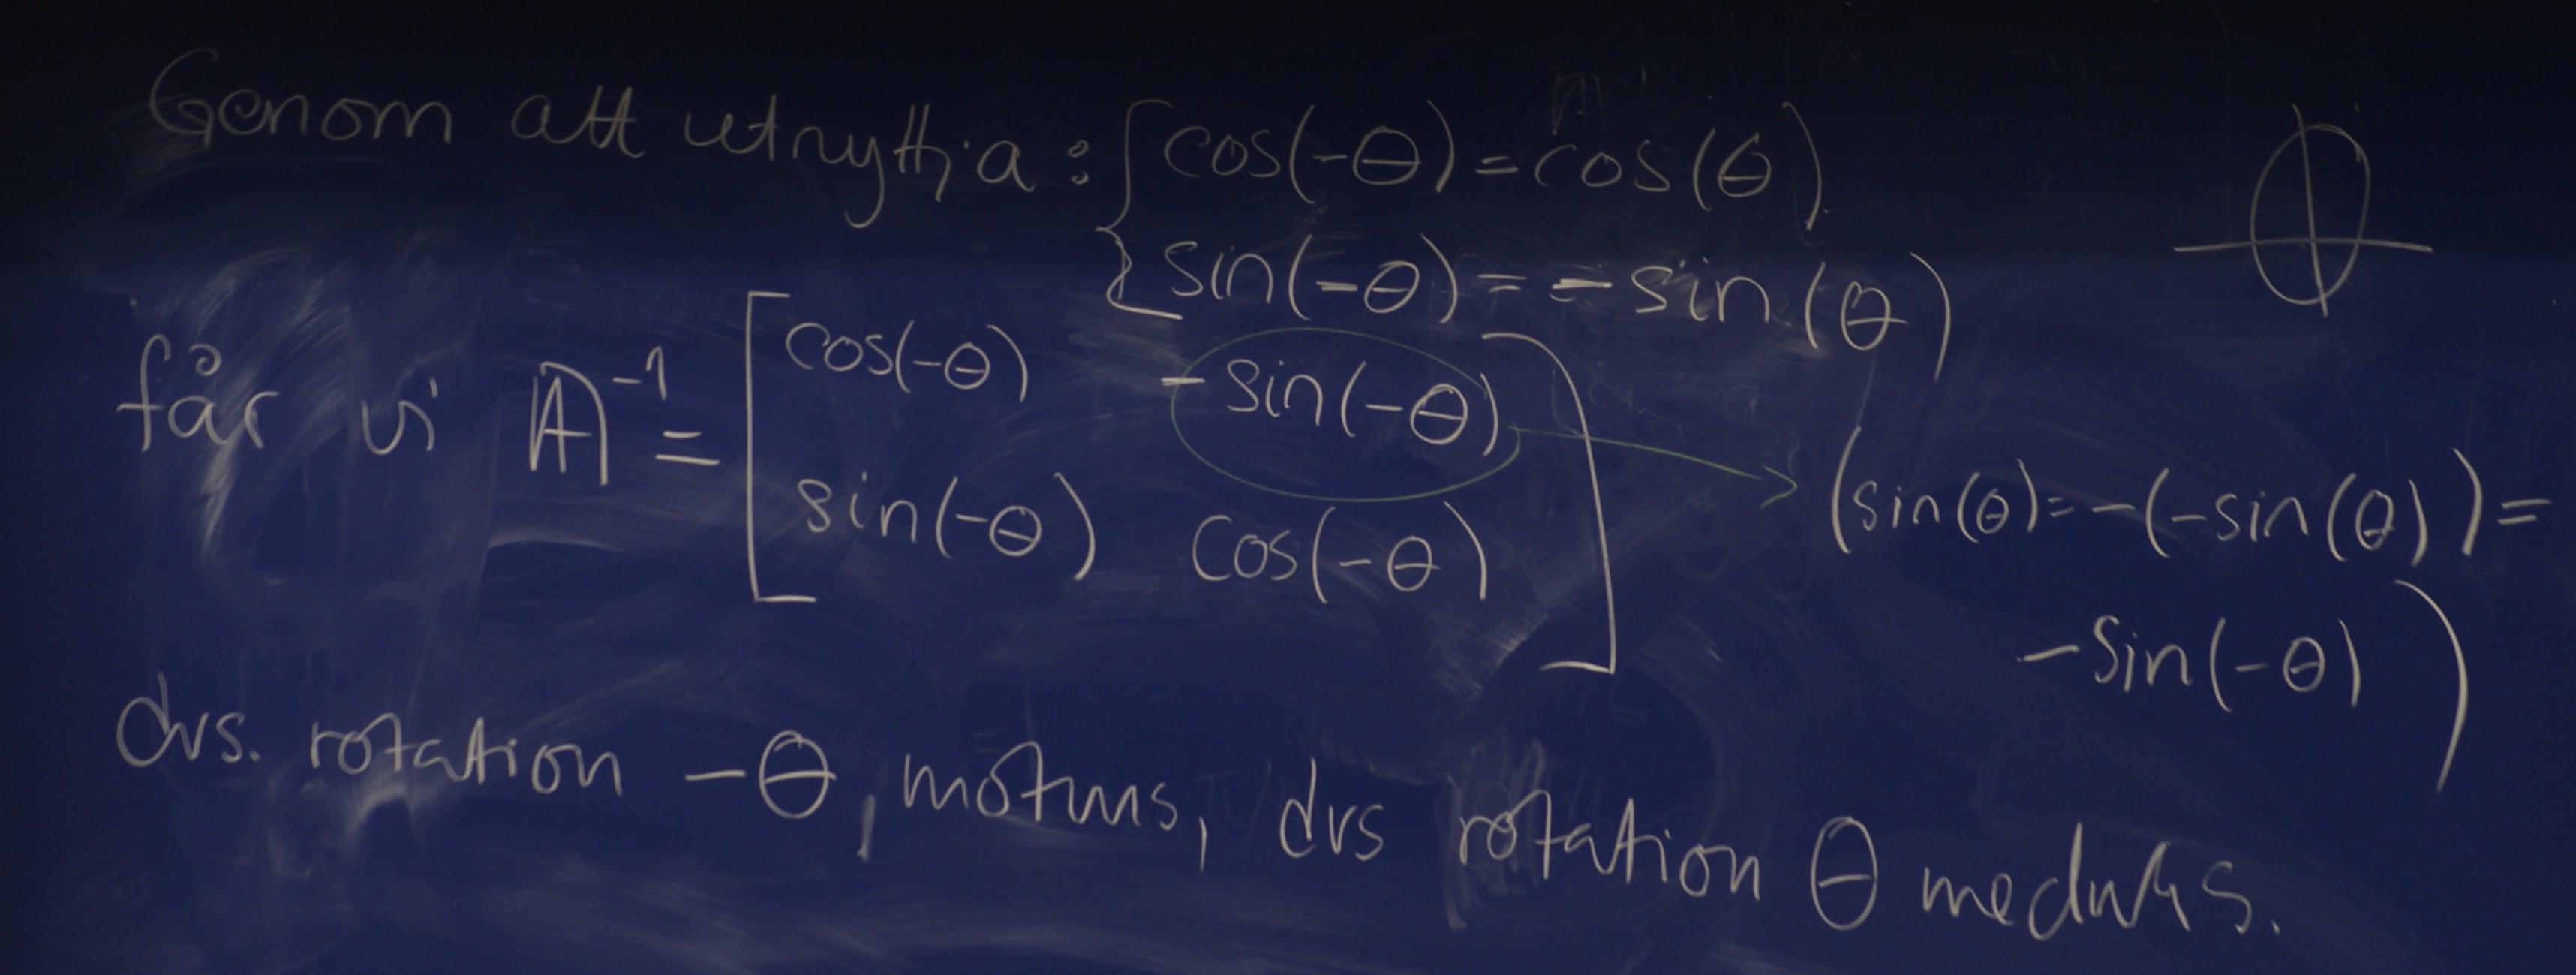 Genom att utnyttja: { cos(-θ) = cos(θ)
{ sin(-θ) = -sin(θ)
får vi A⁻¹ = [ cos(-θ) -sin(-θ) ]
[ sin(-θ) cos(-θ) ]
(sin(θ) = -(-sin(θ)) =
-sin(-θ))
dvs. rotation -θ, moturs, dvs rotation θ medurs.